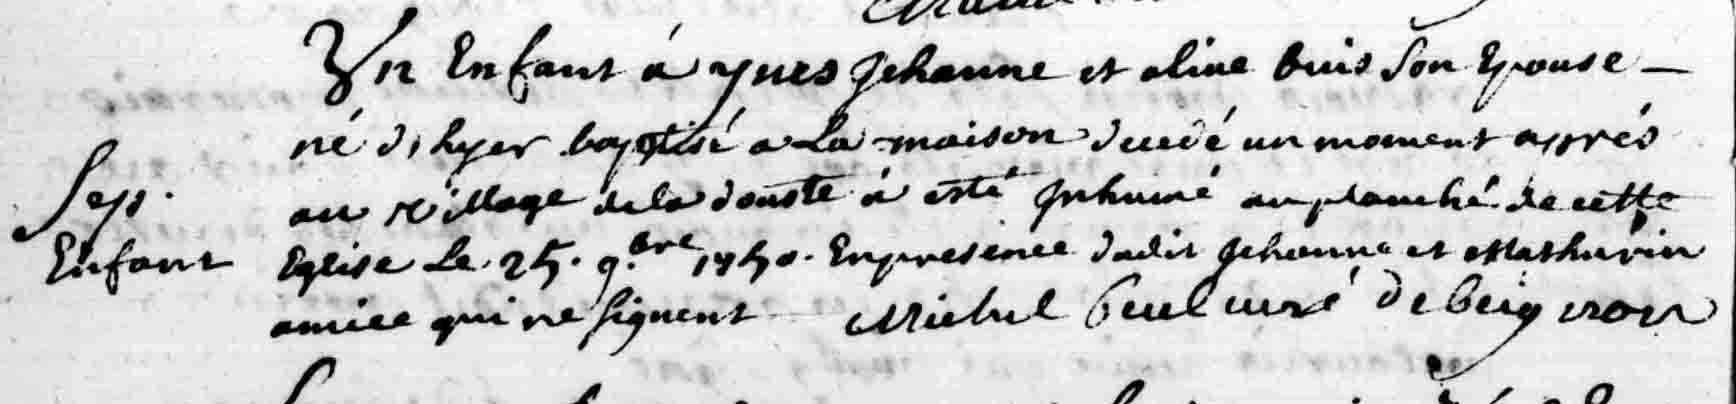 Un Enfant á yues Jehanne et oliue buis Son Epouse –
né d'hyer baptisé a La maison decedé un moment aprés
au Village dela douste á esté Jnhumé au planché de cette
Sep.
Enfant
Eglise Le 25. 9.bre 1750. En presence dudit Jehanne et Mathurin
amice qui ne signent Michel curé de beignon